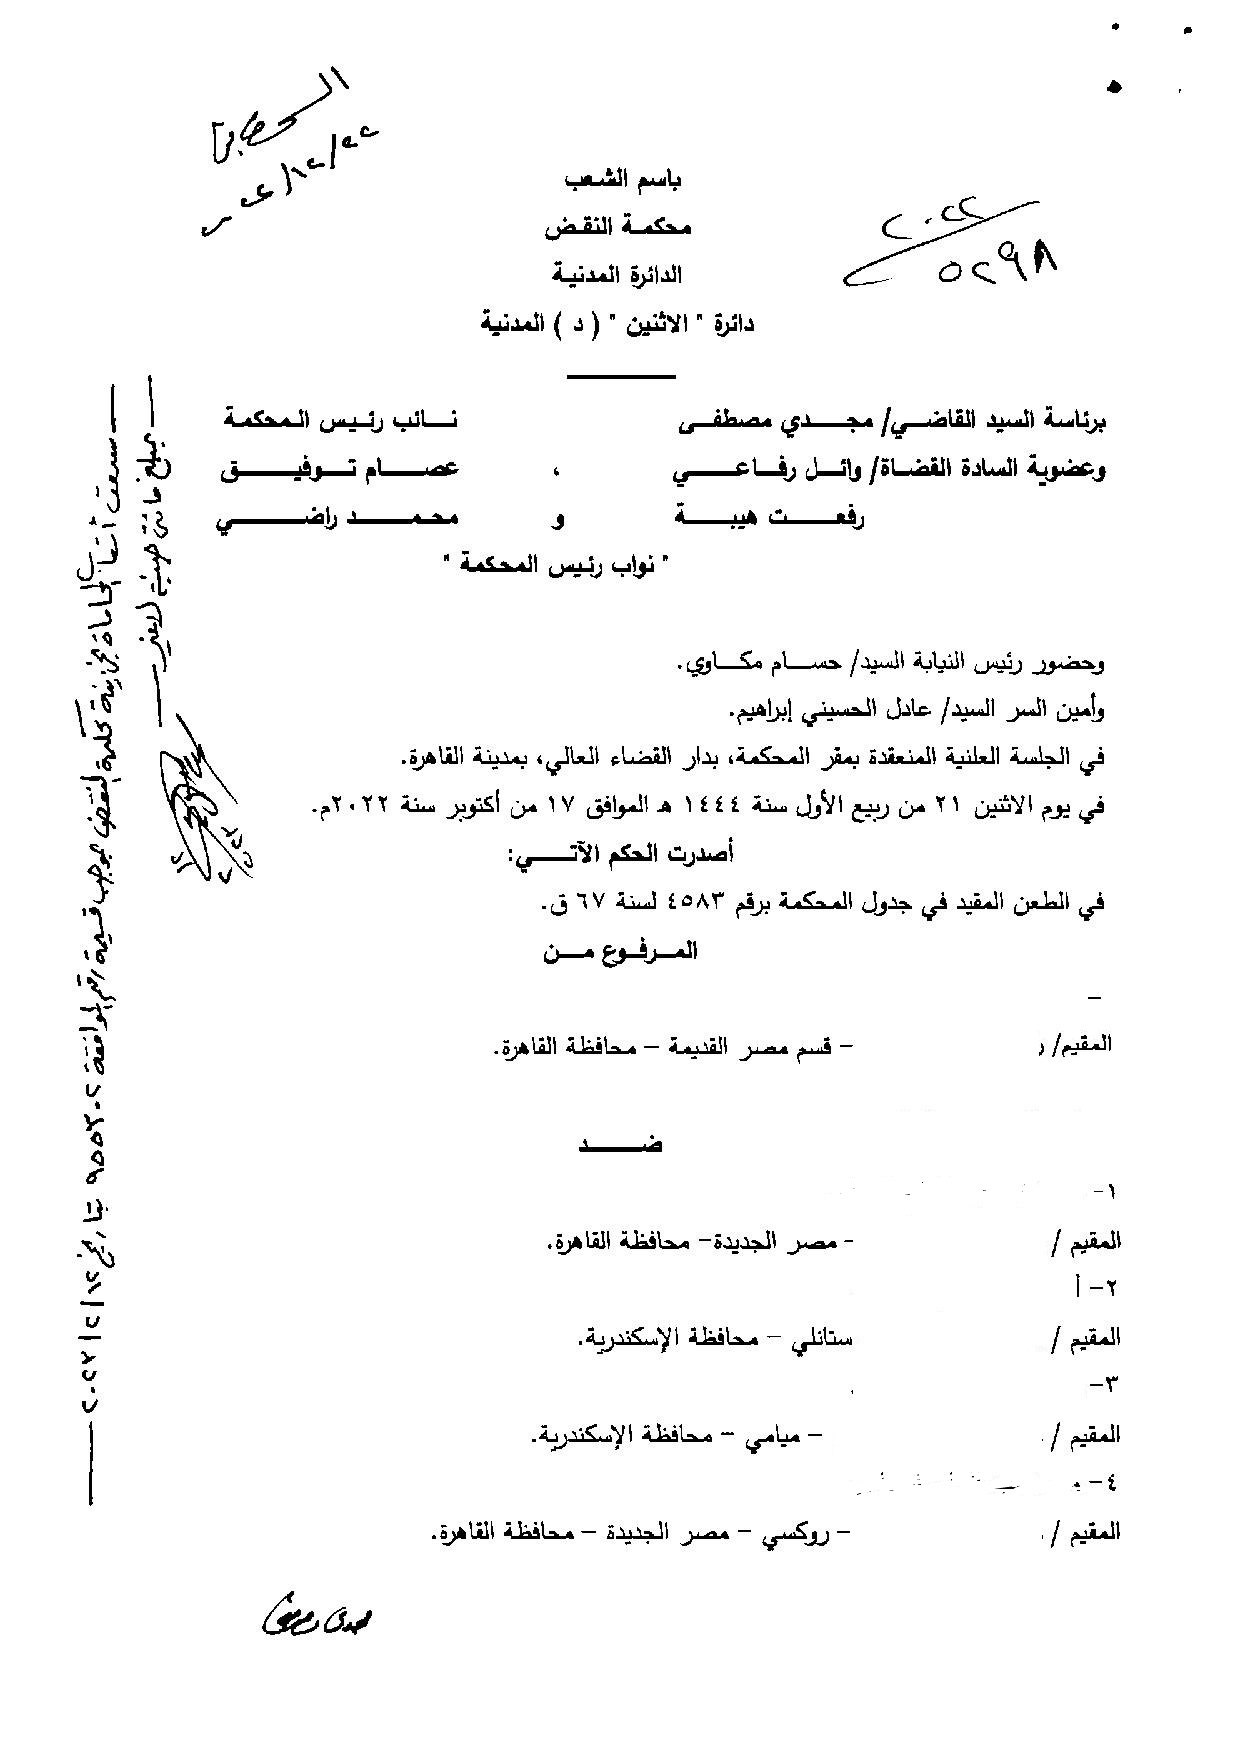 باسم الشعب
محكمة النقض
الدائرة المدنية
دائرة " الاثنين " ( د ) المدنية
برئاسة السيد القاضي/ مجدي مصطفى نائب رئيس المحكمة
وعضوية السادة القضاة/ وائل رفاعي ، عصام توفيق
رفعت هيبة و محمد راضي
" نواب رئيس المحكمة "
وحضور رئيس النيابة السيد/ حسام مكاوي.
وأمين السر السيد/ عادل الحسيني إبراهيم.
في الجلسة العلنية المنعقدة بمقر المحكمة، بدار القضاء العالي، بمدينة القاهرة.
في يوم الاثنين ٢١ من ربيع الأول سنة ١٤٤٤ هـ الموافق ١٧ من أكتوبر سنة ٢٠٢٢م.
أصدرت الحكم الآتي:
في الطعن المقيد في جدول المحكمة برقم ٤٥٨٣ لسنة ٦٧ ق.
المرفوع من
-
المقيم/ ر – قسم مصر القديمة – محافظة القاهرة.
ضد
١-
المقيم / - مصر الجديدة– محافظة القاهرة.
٢- أ
المقيم / ستانلي – محافظة الإسكندرية.
٣-
المقيم / – ميامي – محافظة الإسكندرية.
٤-
المقيم / – روكسي – مصر الجديدة – محافظة القاهرة.
٢٠٢٢
٥٢٩٨
سددت أتعاب المحاماة بخزينة محكمة النقض بموجب قسيمة رقم
بمبلغ مائتي جنيه لا غير